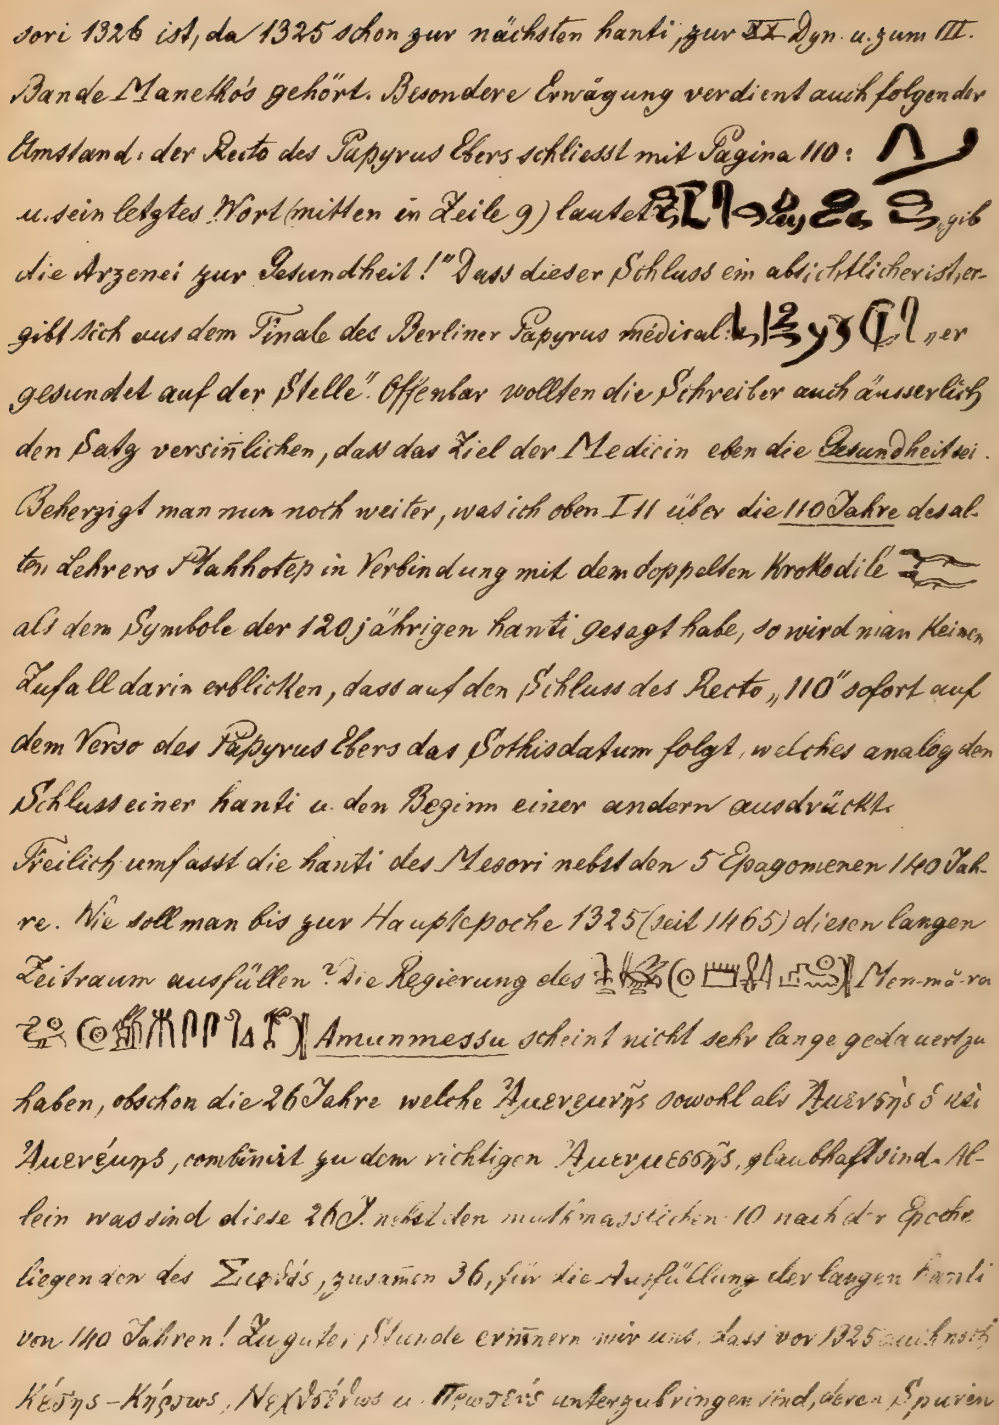 sori 1326 ist, da 1325 schon zur nächsten hanti, zur XX Dyn. u. zum III.
Bande Manethó's gehört. Besondere Erwägung verdient auch folgender
Umstand: der Recto des Papyrus Ebers schliesst mit Pagina 110:
u. sein letztes Wort (mitten in Zeile 9) lautet „gib
die Arzenei zur Gesundheit!" Dass dieser Schluss ein absichtlicher ist, er-
gibt sich aus dem Finale des Berliner Papyrus médical: „er
gesundet auf der Stelle". Offenbar wollten die Schreiber auch äusserlich
den Satz versin̄lichen, dass das Ziel der Medicin eben die Gesundheit sei.
Beherzigt man nun noch weiter, was ich oben I 11 über die 110 Jahre des al-
ten Lehrers Ptahhotep in Verbindung mit dem doppelten Krokodile
als dem Symbole der 120jährigen hanti gesagt habe, so wird man keinen
Zufall darin erblicken, dass auf den Schluss des Recto „110" sofort auf
dem Verso des Papyrus Ebers das Sothisdatum folgt, welches analog den
Schluss einer hanti u. den Beginn einer andern ausdrückt.
Freilich umfasst die hanti des Mesori nebst den 5 Epagomenen 140 Jah-
re. Wie soll man bis zur Hauptepoche 1325 (seit 1465) diesen langen
Zeitraum ausfüllen? Die Regierung des Men-mă-ra
Amunmessu scheint nicht sehr lange gedauert zu
haben, obschon die 26 Jahre welche sowohl als
combinirt zu dem richtigen glaubhaft sind. Al-
lein was sind diese 26 J. nebst den muthmasslichen 10 nach der Epoche
liegenden des zusam̄en 36, für die Ausfüllung der langen hanti
von 140 Jahren! Zu guter Stunde erin̄nern wir uns, dass vor 1325 auch noch
Κέτης – u. Πρωτεύς unterzubringen sind, deren Spuren